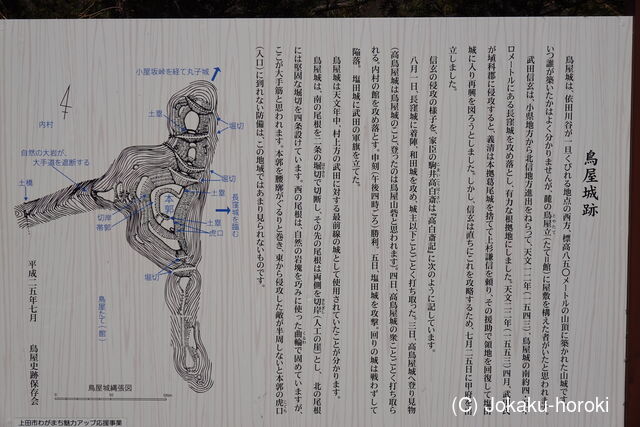 鳥屋城跡
鳥屋城は、依田川谷が一旦くびれる地点の西方、標高八五〇メートルの山頂に築かれた山城です。
いつ誰が築いたかはよく分かりませんが、麓の鳥屋立(たて=館)に屋敷を構えた者がいたと思われ
武田信玄は、小県地方から北信地方進出をねらって、天文一二年(一五四三)、鳥屋城の南約四
ロメートルにある長窪城を攻め落とし、有力な根拠地にしました。天文二二年(一五五三)四月、武
が埴科郡に侵攻すると、義清は本拠葛尾城を捨てて上杉謙信を頼り、その援助で領地を回復して塩
城に入り再興を図ろうとしました。しかし、信玄は直ちにこれを攻略するため、七月二五日に甲府を
立しました。
信玄の侵攻の様子を、家臣の駒井高白斎は『高白斎記』に次のように記しています。
八月一日、長窪城に着陣。和田城を攻め、城主以下ことごとく打ち取った。三日、高鳥屋城へ登り見物
(高鳥屋城は鳥屋城のこと、登ったのは鳥屋山砦と思われます)。四日、高鳥屋城の衆ことごとく打ち取ら
れる。内村の館を攻め落とす。申刻(午後四時ごろ)勝利。五日、塩田城を攻撃。回りの城は戦わずして
陥落。塩田城に武田の軍旗を立てた。
鳥屋城は天文年中、村上方の武田に対する最前線の城として使用されていたことが分かります。
鳥屋城は、南の尾根を二条の堀切で切断し、その先の尾根は両側を切岸(人工の崖)とし、北の尾根
には堅固な堀切を四条設けています。西の尾根は、自然の岩塊を巧みに使った曲輪で固めていますが、
ここが大手筋と思われます。本郭を腰郭がぐるりと巻き、東から侵攻した敵が半周しないと本郭の虎口
(入口)に到れない防備は、この地域ではあまり見られないものです。
平成二五年七月　鳥屋史跡保存会
小屋坂峠を経て丸子城
内村
土塁
堀切
自然の大岩が、
大手道を遮断する
堀切
土橋
土塁
本郭
長窪城を臨む
切岸
帯郭
土塁
虎口
堀切
鳥屋たて(館)
鳥屋城縄張図
上田市わがまち魅力アップ応援事業
(C) Jokaku-horoki